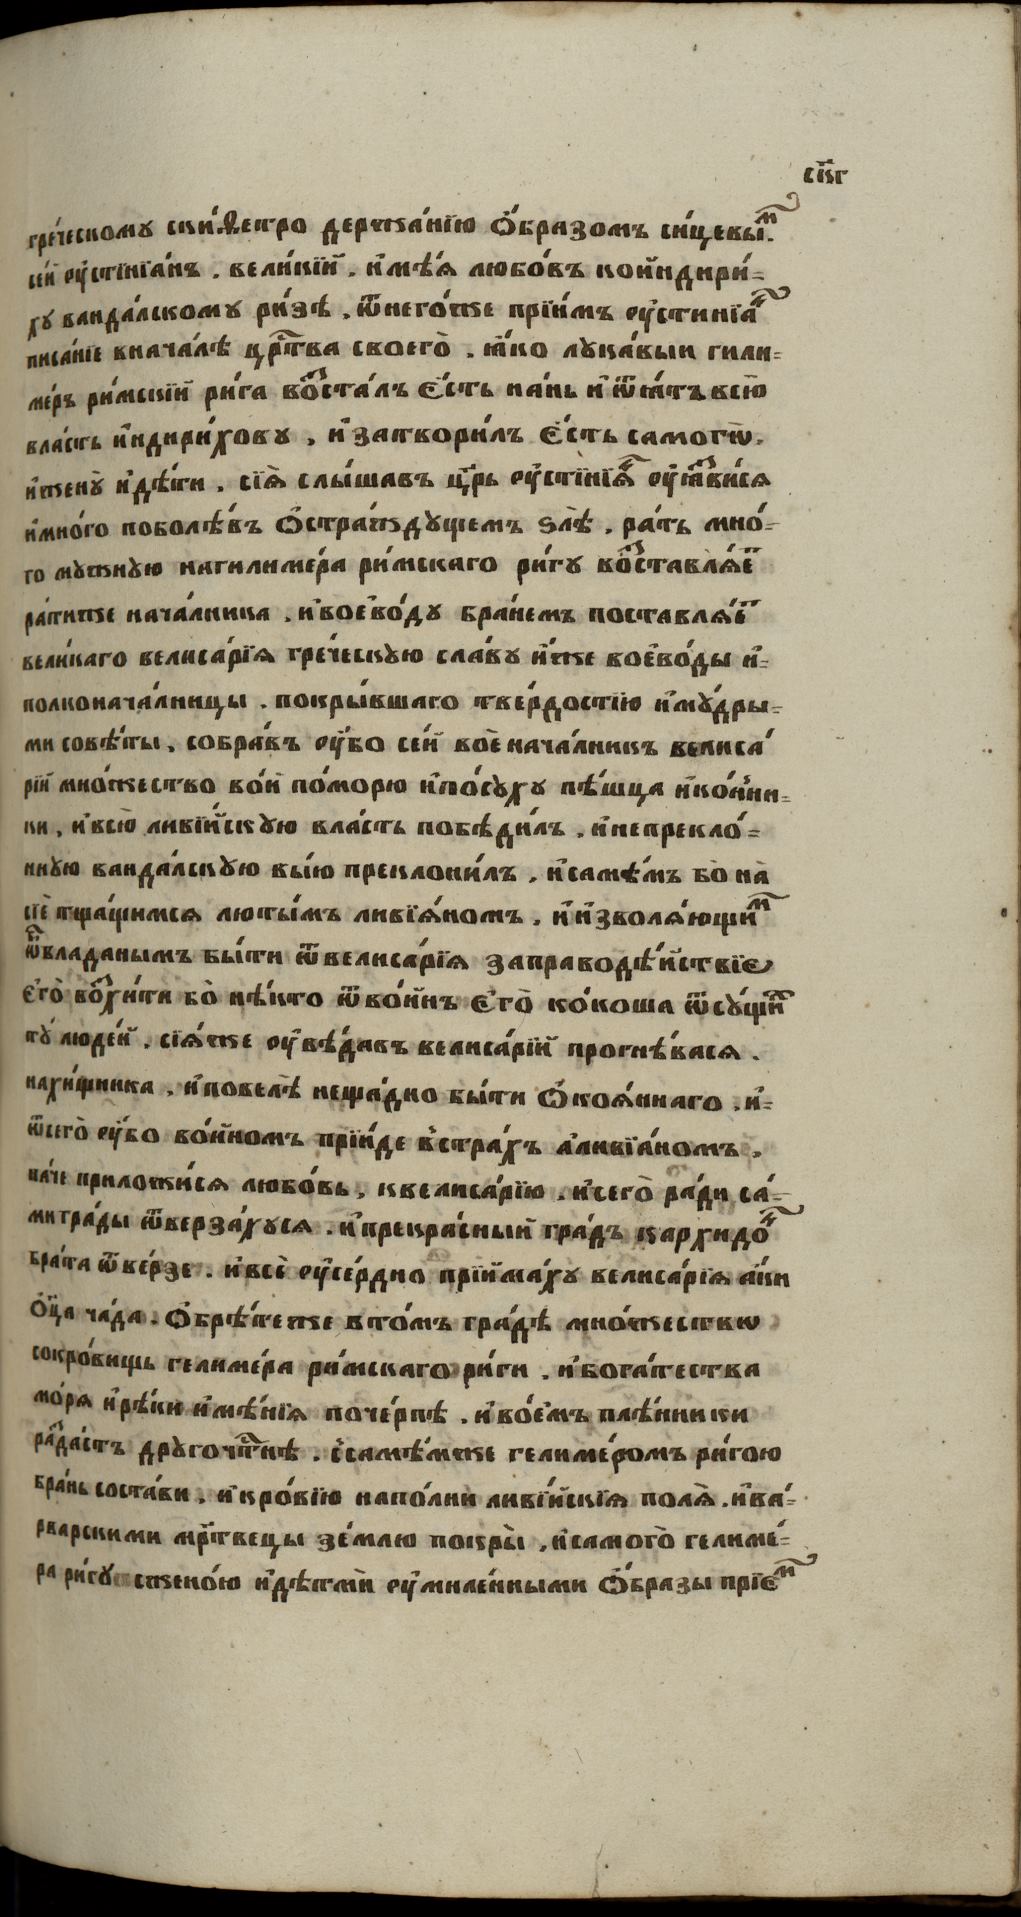 ск҃г
гре́ческому ски́ѳетро держа́нїю ѻ҆́бразомъ си́цевы́ⷨ.
се́й ᲂу҆стїнїа́нъ . вели́кїй . и҆мѣ́ѧ любо́въ кои҆ндири́=
ху ванда́лскому ри́зѣ , ѿнего́же прїи́мъ ᲂу҆стинїа́ⷩ
писа́нїе внача́лѣ црⷭ҇тва своего̀ . ꙗ҆́ко лука́выи гили=
ме́ръ ри́мскїй ри́га воⷥста́лъ є҆́сть на́нь и҆ ѿѧ́тъ всю̀
вла́сть и҆ндири́хову , и҆ затвори́лъ є҆́сть самогѡ̀ ,
и҆жену̀ и҆дѣ́ти . сїѧ̀ слы́шавъ цр҃ь ᲂу҆стїнїѧ́ⷩ ᲂу҆ꙗ҆ⷥви́сѧ
и҆мно́го поболѣ́въ ѻ҆стра́ждущемъ ѕлѣ̀ . ра́ть мно́=
гомужную нагилиме́ра ри́мскаго ри́гу воⷥставлѧ́еⷮ
ра́тиже нача́лника . и҆воево́ду бра́немъ поставлѧ́еⷮ
вели́каго велиса́рїѧ гре́ческую сла́ву и҆́же воево́ды и҆=
полконача́лницы . покры́вшаго тве́рдостїю и҆му́дры=
ми совѣ́ты , собра́въ ᲂу҆́бо се́й воеⷩача́лникъ велиса́
рїй мно́жество во́й по́морю и҆по́суху пѣ́шца и҆ко́нни=
ки , и҆всю̀ ливїй́скую вла́сть побѣди́лъ , и҆непрекло́=
нную ванда́лскую вы́ю преклони́лъ , и҆самѣ́мъ бо̀ на̀
сїѐ тща́щимсѧ лю́тымъ ливїѧ́номъ , и҆ и҆зволѧ́ющиⷨ
ѿвладанымъ бы́ти ѿвелиса́рїѧ заправодѣ́йствїе
є҆го̀ воⷥхи́ти бо̀ нѣ́кто ѿво́йнъ є҆го̀ ко́коша ѿсу́щиⷯ
ту̀ люде́й . сїѧ́же ᲂу҆вѣ́давъ велиса́рїй прогнѣ́васѧ .
нахи́щника , и҆повелѣ̀ неща́дно бы́ти ѻ҆коѧ́ннаго . и҆=
ѿсего̀ ᲂу҆́бо во́йномъ прїи́де в҆стра́хъ аливїа́номъ ,
па́че приложи́сѧ любо́вь , квелиса́рїю . и҆сего̀ ра́ди са́=
ми гра́ды ѿверза́хусѧ . и҆прекра́сный гра́дъ кархидо́ⷩ
врата̀ ѿве́рзе . и҆всѐ ᲂу҆се́рдно прїима́ху велиса́рїѧ а҆́ки
ѻ҆ц҃а ча́да . ѻ҆брѣ́теже вто́мъ гра́дѣ мно́жествѡ
сокро́вищь гелиме́ра ри́мскаго ри́ги . и҆бога́тества
мо́рѧ и҆рѣ́ки и҆мѣ́нїѧ поче́рпѣ . и҆во́емъ плѣ́нники
раⷥда́стъ другочⷭ҇тнѣ . с҆самѣ́мже гелиме́ромъ ри́гою
бра́нь соста́ви . и҆кро́вїю напо́лни ливїй́скїѧ полѧ̀ . и҆ва́=
рварскими мр҃твецы зе́млю покры̀ , и҆самого̀ гелиме́=
ра ри́гу сжено́ю и҆дѣ́тмѝ ᲂу҆миле́нными ѻ҆́бразы прїе́ⷨ